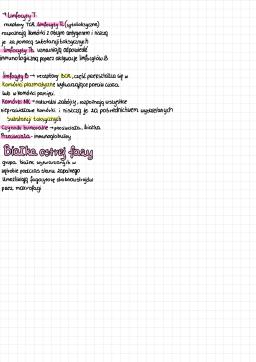 → Limfocyty T.
receptory TCR. Limfocyty Tc (cytotoksyczne)
rozpoznają komórki z obcym antygenem i niszczą
je za pomocą substancji toksycznych
Limfocyty Th wzmacniają odpowiedź
immunologiczną poprzez aktywacje limfocytów B
Limfocyty B → receptory BCR, część przekształca się w
komórki plazmatyczne wytwarzające przeciwciała
lub w komórki pamięci
Komórki NK - naturalni zabójcy, rozpoznają wszystkie
nieprawidłowe komórki i niszczą je za pośrednictwem wydzielanych
substancji toksycznych
Czynniki humoralne → przeciwciała, białka
Przeciwciała - immunoglobuliny
Białka ostrej fazy
grupa białek wytwarzanych w
wątrobie podczas stanu zapalnego
Umożliwiają fagocytozę drobnoustrojów
przez makrofagi